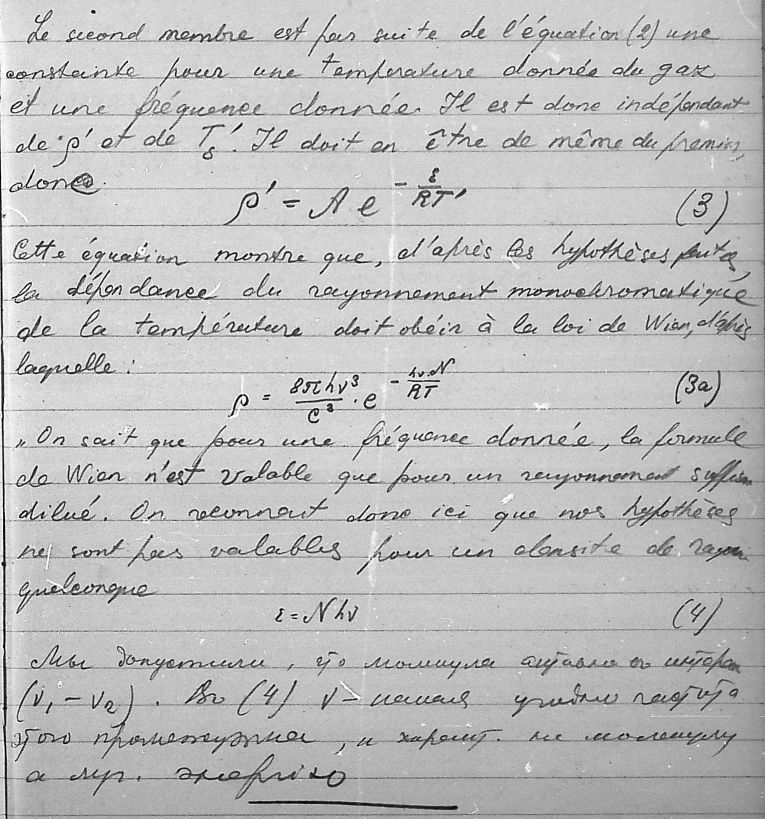 Le second membre est par suite de l'équation (2) une
constante pour une température donnée du gaz
et une fréquence donnée. Il est donc indépendant
de ρ' et de T_s'. Il doit en être de même du premier,
donc
ρ' = A e^{-ε/RT'} (3)
Cette équation montre que, d'après les hypothèses faites,
la dépendance du rayonnement monochromatique
de la température doit obéir à la loi de Wien, d'après
laquelle:
ρ = 8πhν³/c³ · e^{-hν·N/RT} (3a)
„On sait que pour une fréquence donnée, la formule
de Wien n'est valable que pour un rayonnement
dilué. On reconnait donc ici que nos hypothèses
ne sont pas valables pour un densite de
quelconque
ε = Nhν (4)
Мы допустили, что молекула
(ν₁ – ν₂). Во (4) ν – какая угодно частота
этого промежутка, и не молекулу
а энергию